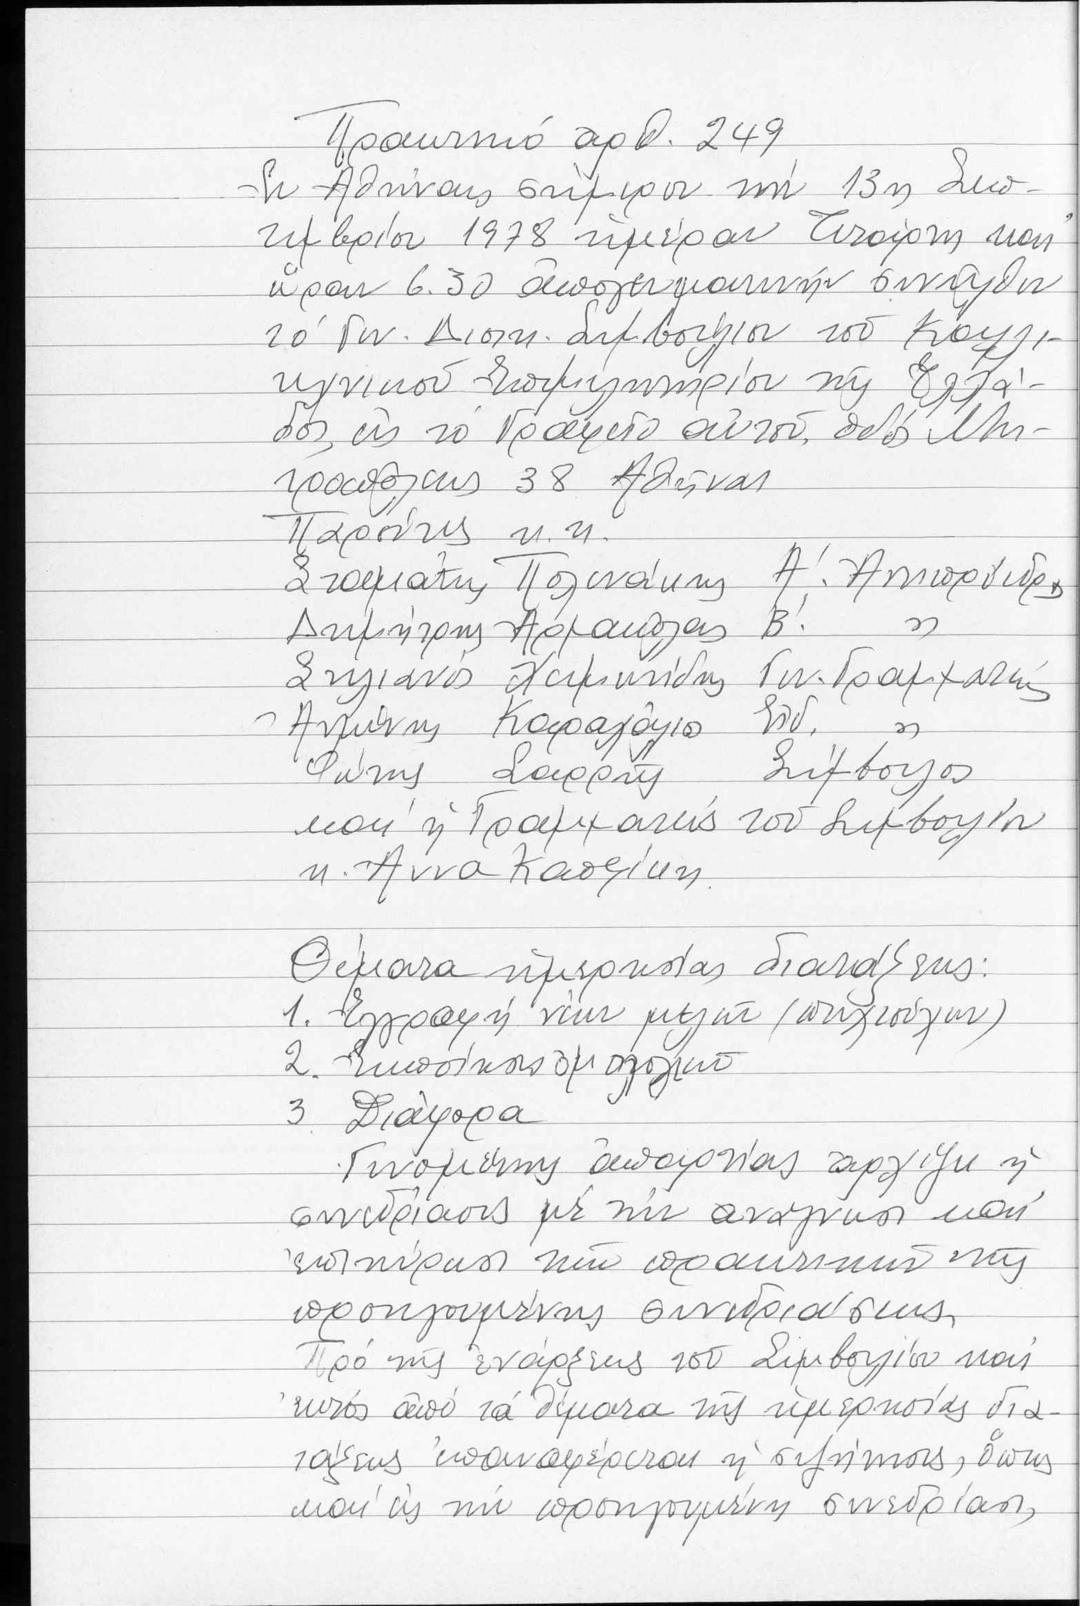 Πρακτικό αρθ. 249
Ἐν Ἀθήναις σήμερον τήν 13η Σεπ-
τεμβρίου 1978 ἡμέραν Τετάρτη καί
ὥραν 6.30 ἀπογευματινήν συνῆλθεν
τό Γεν. Διοικ. Συμβούλιον τοῦ Καλλι-
τεχνικοῦ Ἐπιμελητηρίου τῆς Ἑλλά-
δος, εἰς τό Γραφεῖο αὐτοῦ, ὁδός Μη-
τροπόλεως 38 Ἀθῆναι
Παρόντες κ.κ.
Σταμάτης Πολενάκης Α΄. Ἀντιπρόεδρος
Δημήτρης Ἀρμακόλας Β΄. "
Στυλιανός Γεν. Γραμματεύς
Ἀντώνης Καραχάλιο Εἰδ. "
Φώτης Σαρρῆς Σύμβουλος
καί ἡ Γραμματεύς τοῦ Συμβουλίου
κ. Ἄννα Καψάκη.
Θέματα ἡμερησίας διατάξεως:
1. Ἐγγραφή νέων μελῶν (πτυχιούχων)
2. Ἐκποίησις ὁμολογιῶν
3. Διάφορα
Γενομένης ἀπαρτίας ἀρχίζει ἡ
συνεδρίασις μέ τήν ἀνάγνωσι καί
ἐπικύρωσι τῶν πρακτικῶν τῆς
προηγουμένης συνεδριάσεως.
Πρό τῆς ἐνάρξεως τοῦ Συμβουλίου καί
ἐκτός ἀπό τά θέματα τῆς ἡμερησίας δια-
τάξεως ἐπαναφέρεται ἡ συζήτησις, ὅπως
καί εἰς τήν προηγουμένη συνεδρίασι,